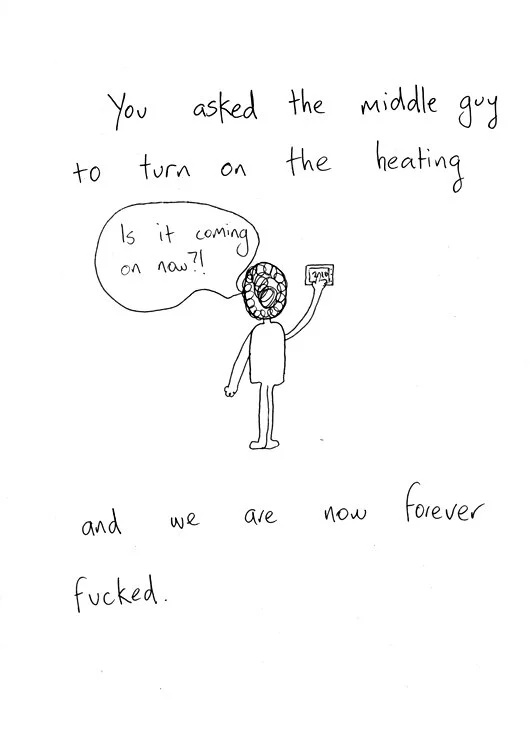 You asked the middle guy
to turn on the heating
Is it coming
on now?!
and we are now forever
fucked.